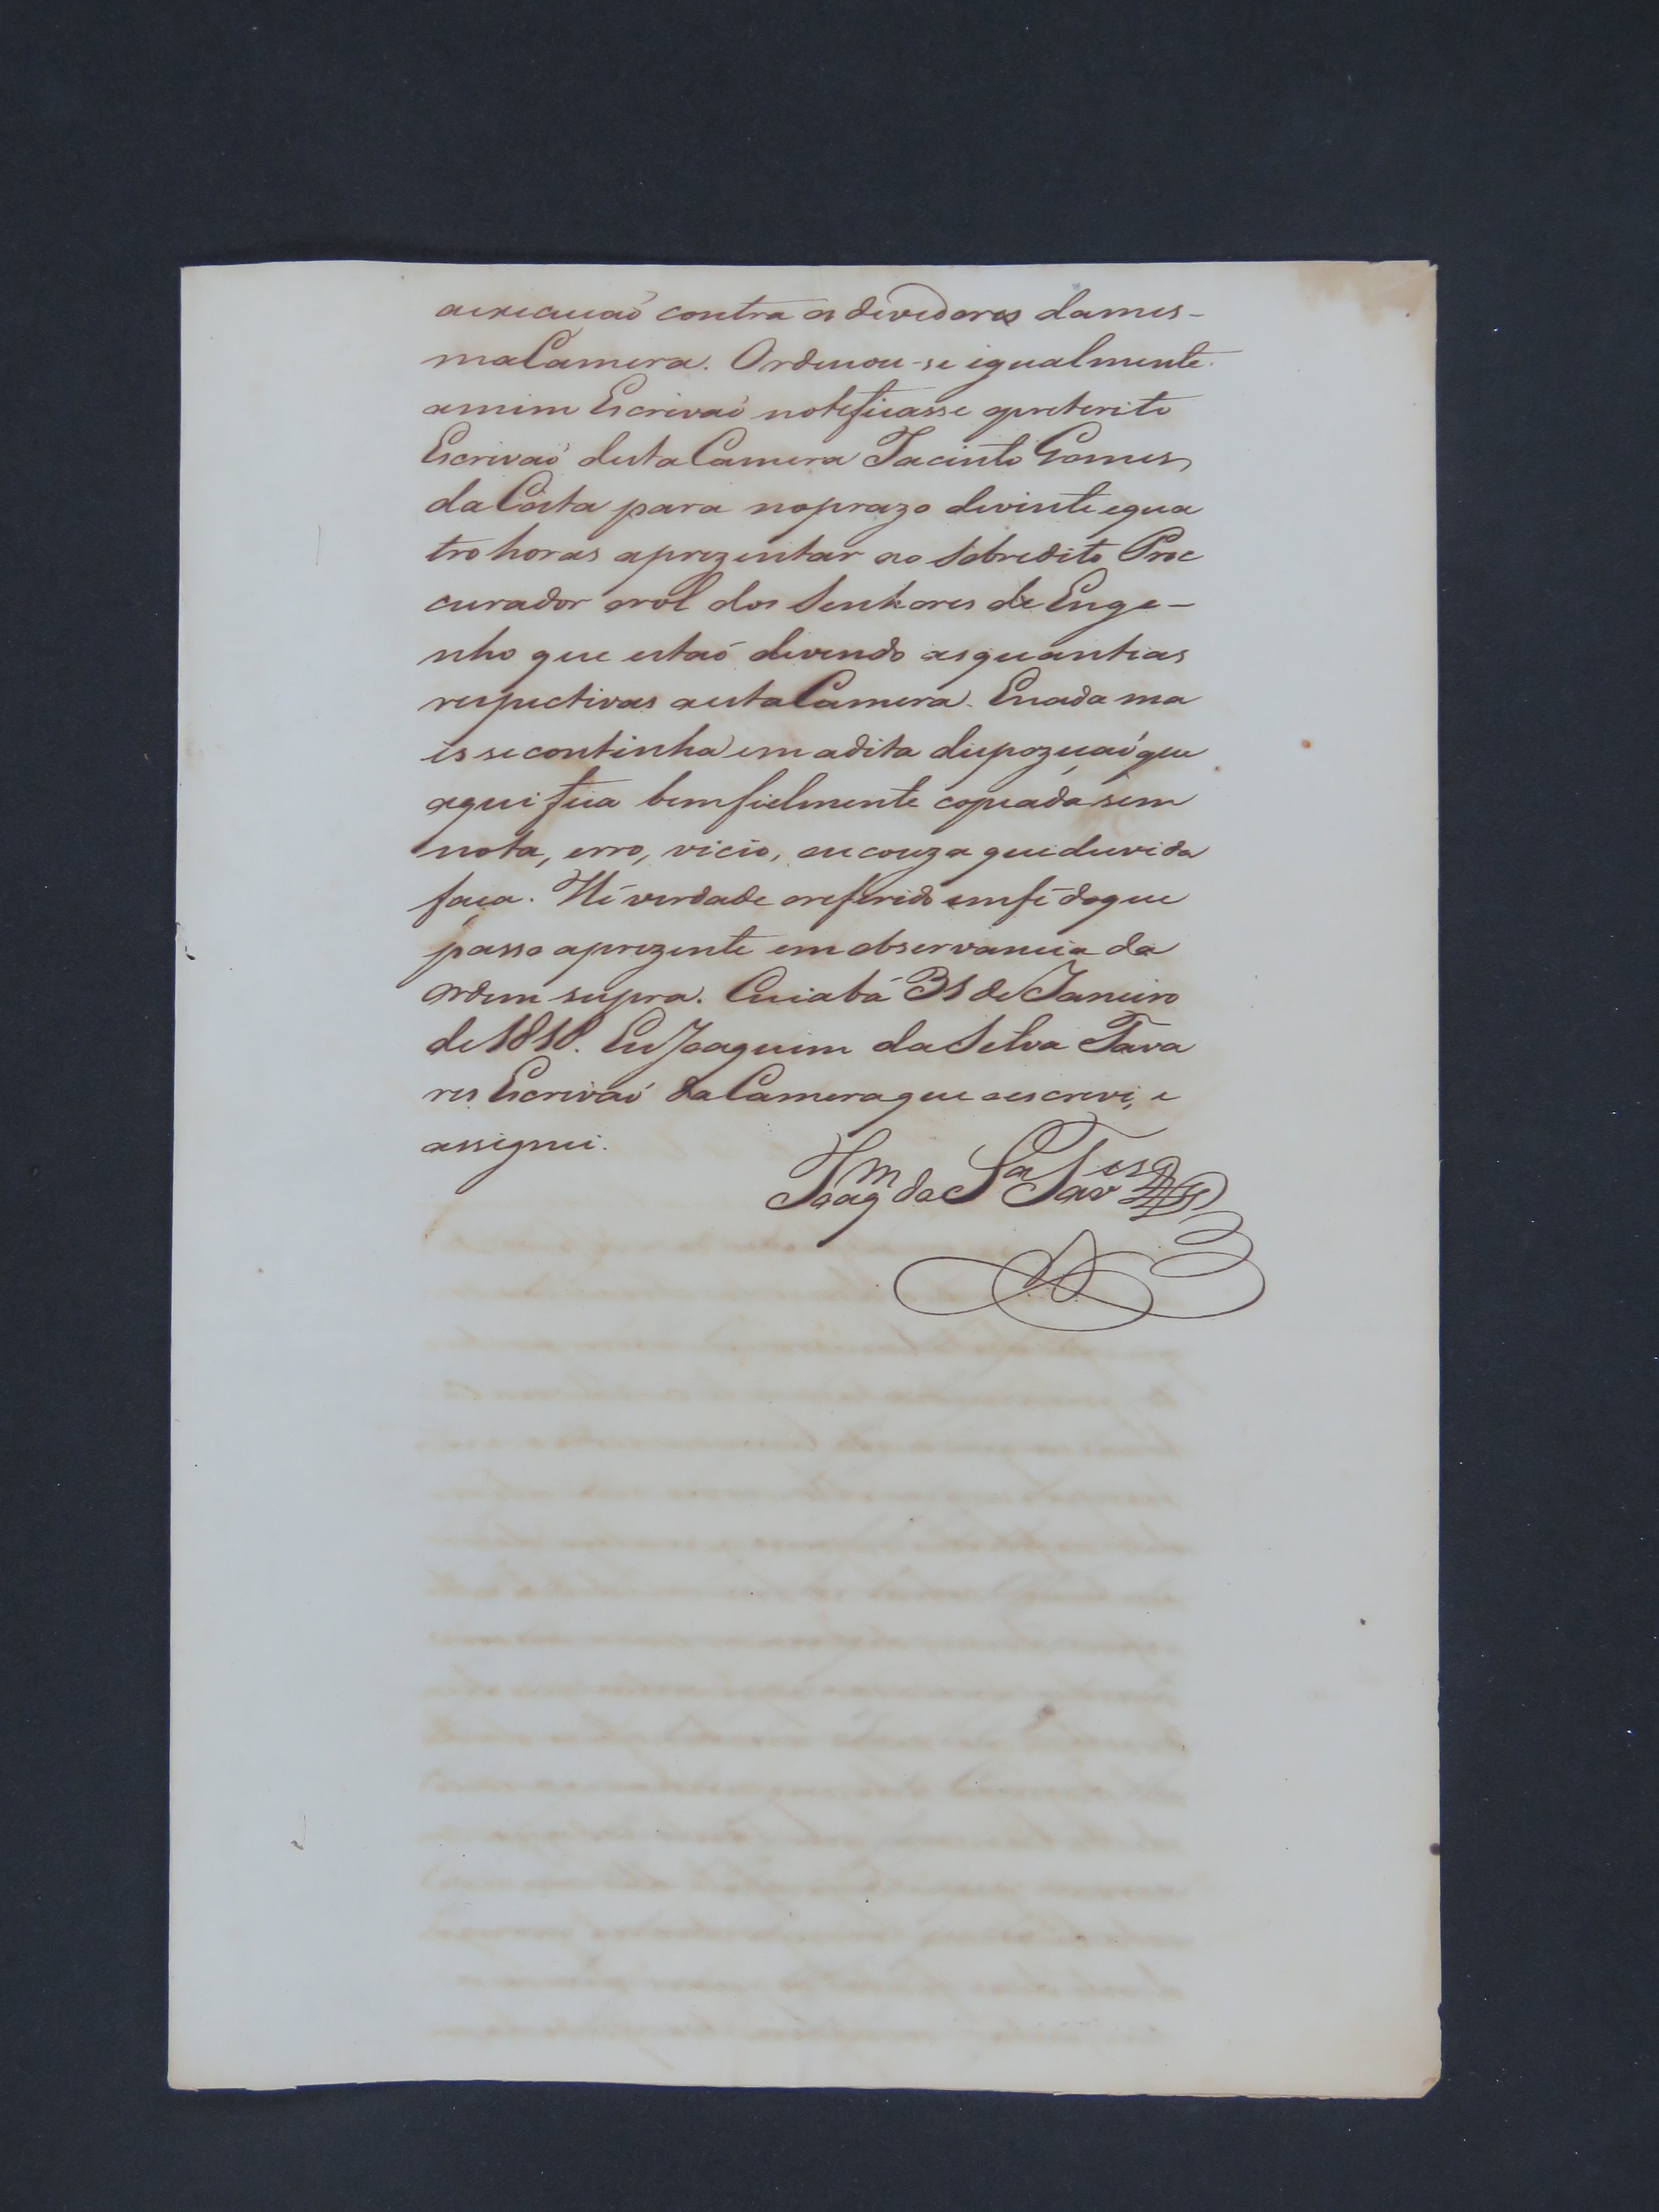 aexecucaõ contra os devedores dames-
maCamera. Ordenou-se igualmente
amim Escrivaõ noteficasse opreterito
Escrivaõ destaCamera Jacinto Gomes
daCosta para noprazo devinte equa
tro horas aprezentar ao sobredito Proc
curador orol dos Senhores de Enge-
nho que estaõ devendo asquantias
respectivas aestaCamera. Enada ma
is secontinha em adita dispoziçaõ que
aqui fica bemfielmente copiada sem
nota, erro, vicio, oucouza queduvida
faça. Hé verdade oreferido emfé doque
passo aprezente em observancia da
ordem supra. Cuiabá 31 de Janeiro
de 1818. Eu Joaquim da Silva Tava
res Escrivaõ da Camera que aescrevi, e
assignei.
Joaqm da Sa Taves